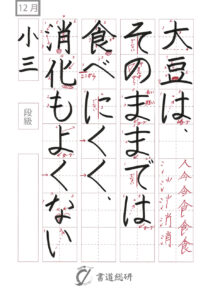 大豆は、
そのままでは
食べにくく、
消化もよくない
12月
小三
段級
人今今食食食
消消消
書道総研